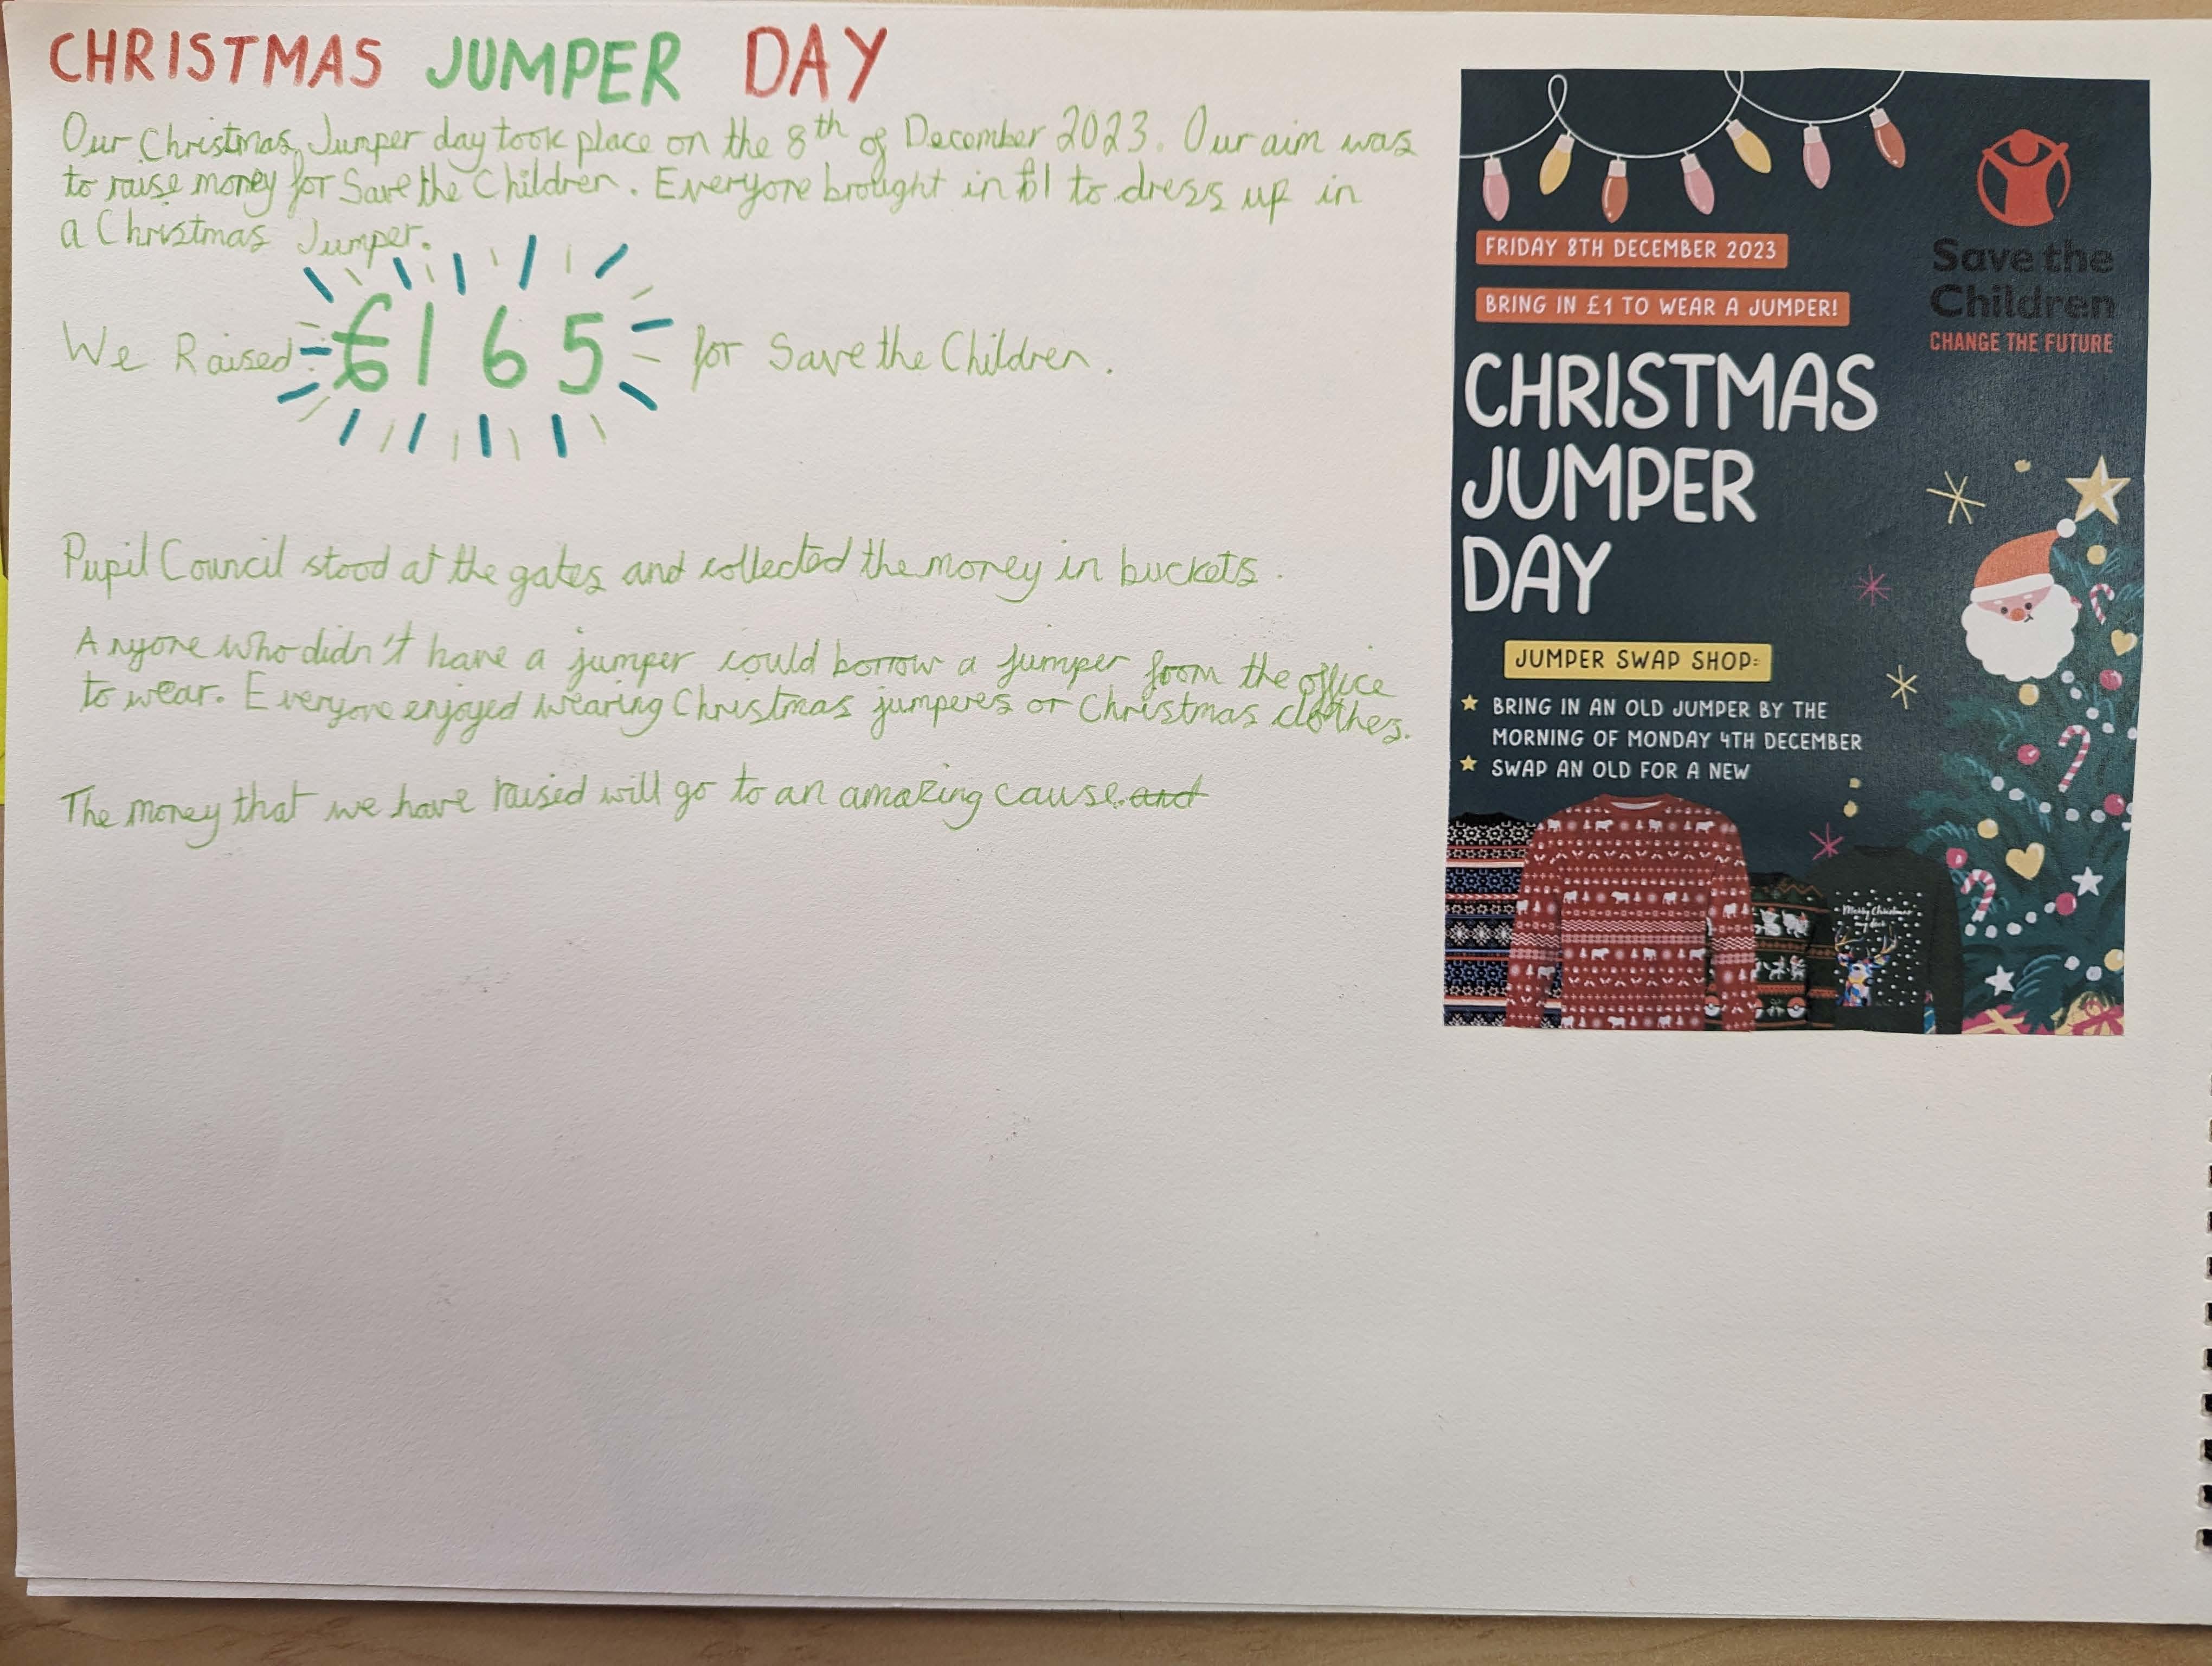 CHRISTMAS JUMPER DAY
Our Christmas Jumper day took place on the 8th of December 2023. Our aim was
to raise money for Save the Children. Everyone brought in £1 to dress up in
a Christmas Jumper.
We Raised £165 for Save the Children.
Pupil Council stood at the gates and collected the money in buckets.
Anyone who didn't have a jumper could borrow a jumper from the office
to wear. Everyone enjoyed wearing Christmas jumperes or Christmas clothes.
The money that we have raised will go to an amazing cause. and
Save the
Children
CHANGE THE FUTURE
FRIDAY 8TH DECEMBER 2023
BRING IN £1 TO WEAR A JUMPER!
CHRISTMAS
JUMPER
DAY
JUMPER SWAP SHOP:
BRING IN AN OLD JUMPER BY THE
MORNING OF MONDAY 4TH DECEMBER
SWAP AN OLD FOR A NEW
Merry Christmas